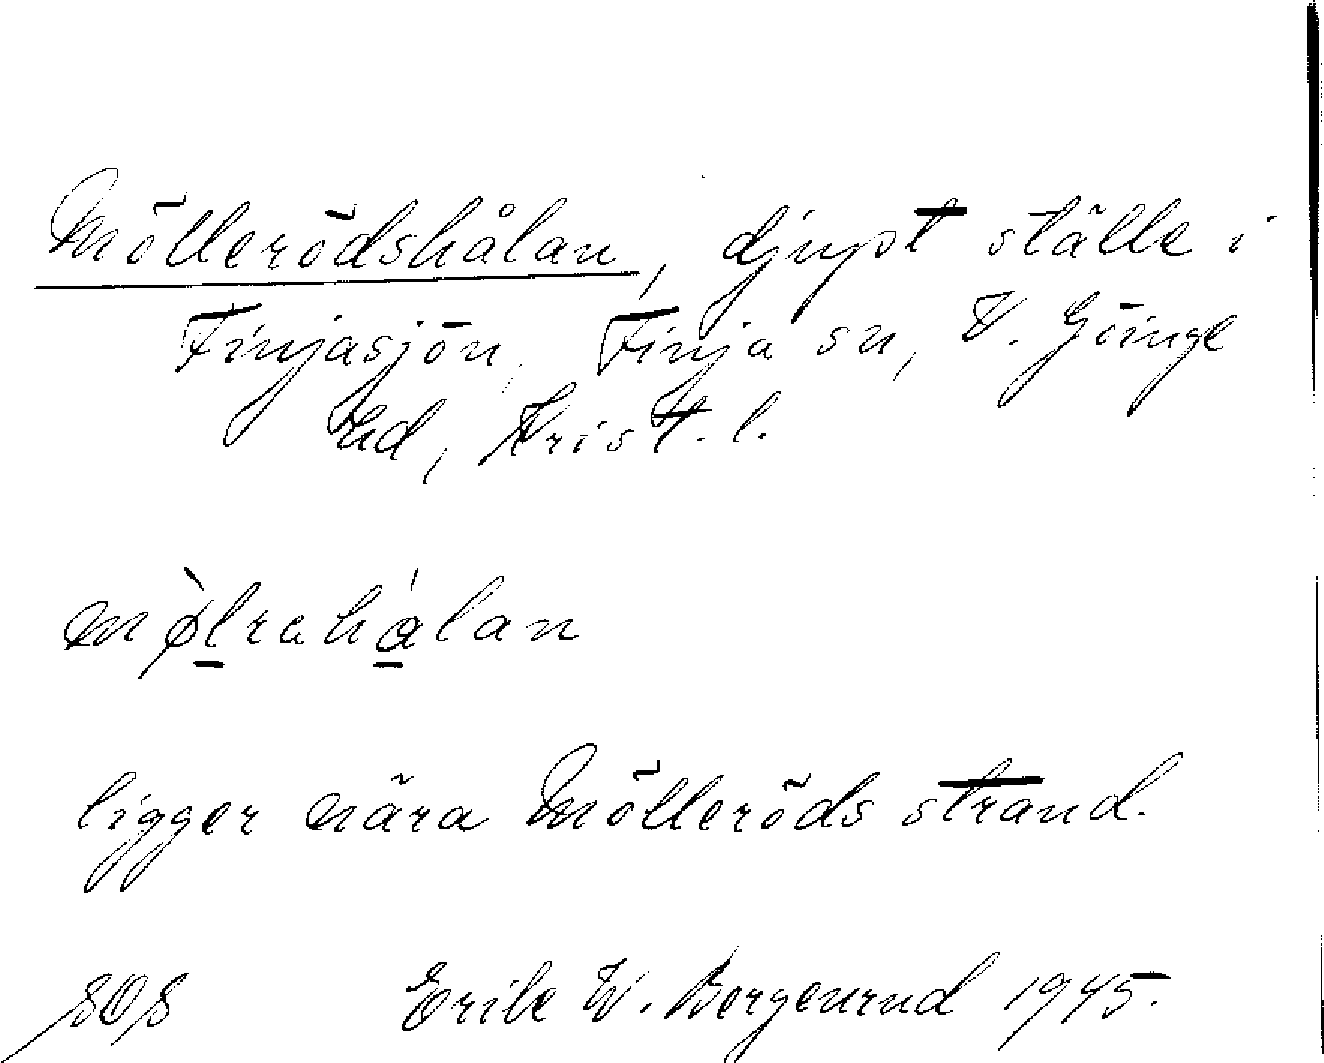 Möllerödshålan, djupt ställe i
Finjasjön, Finja sn, V. Göinge
hd, Krist. l.
mø̀lrahálan
ligger nära Mölleröds strand.
Erik W.
1945.